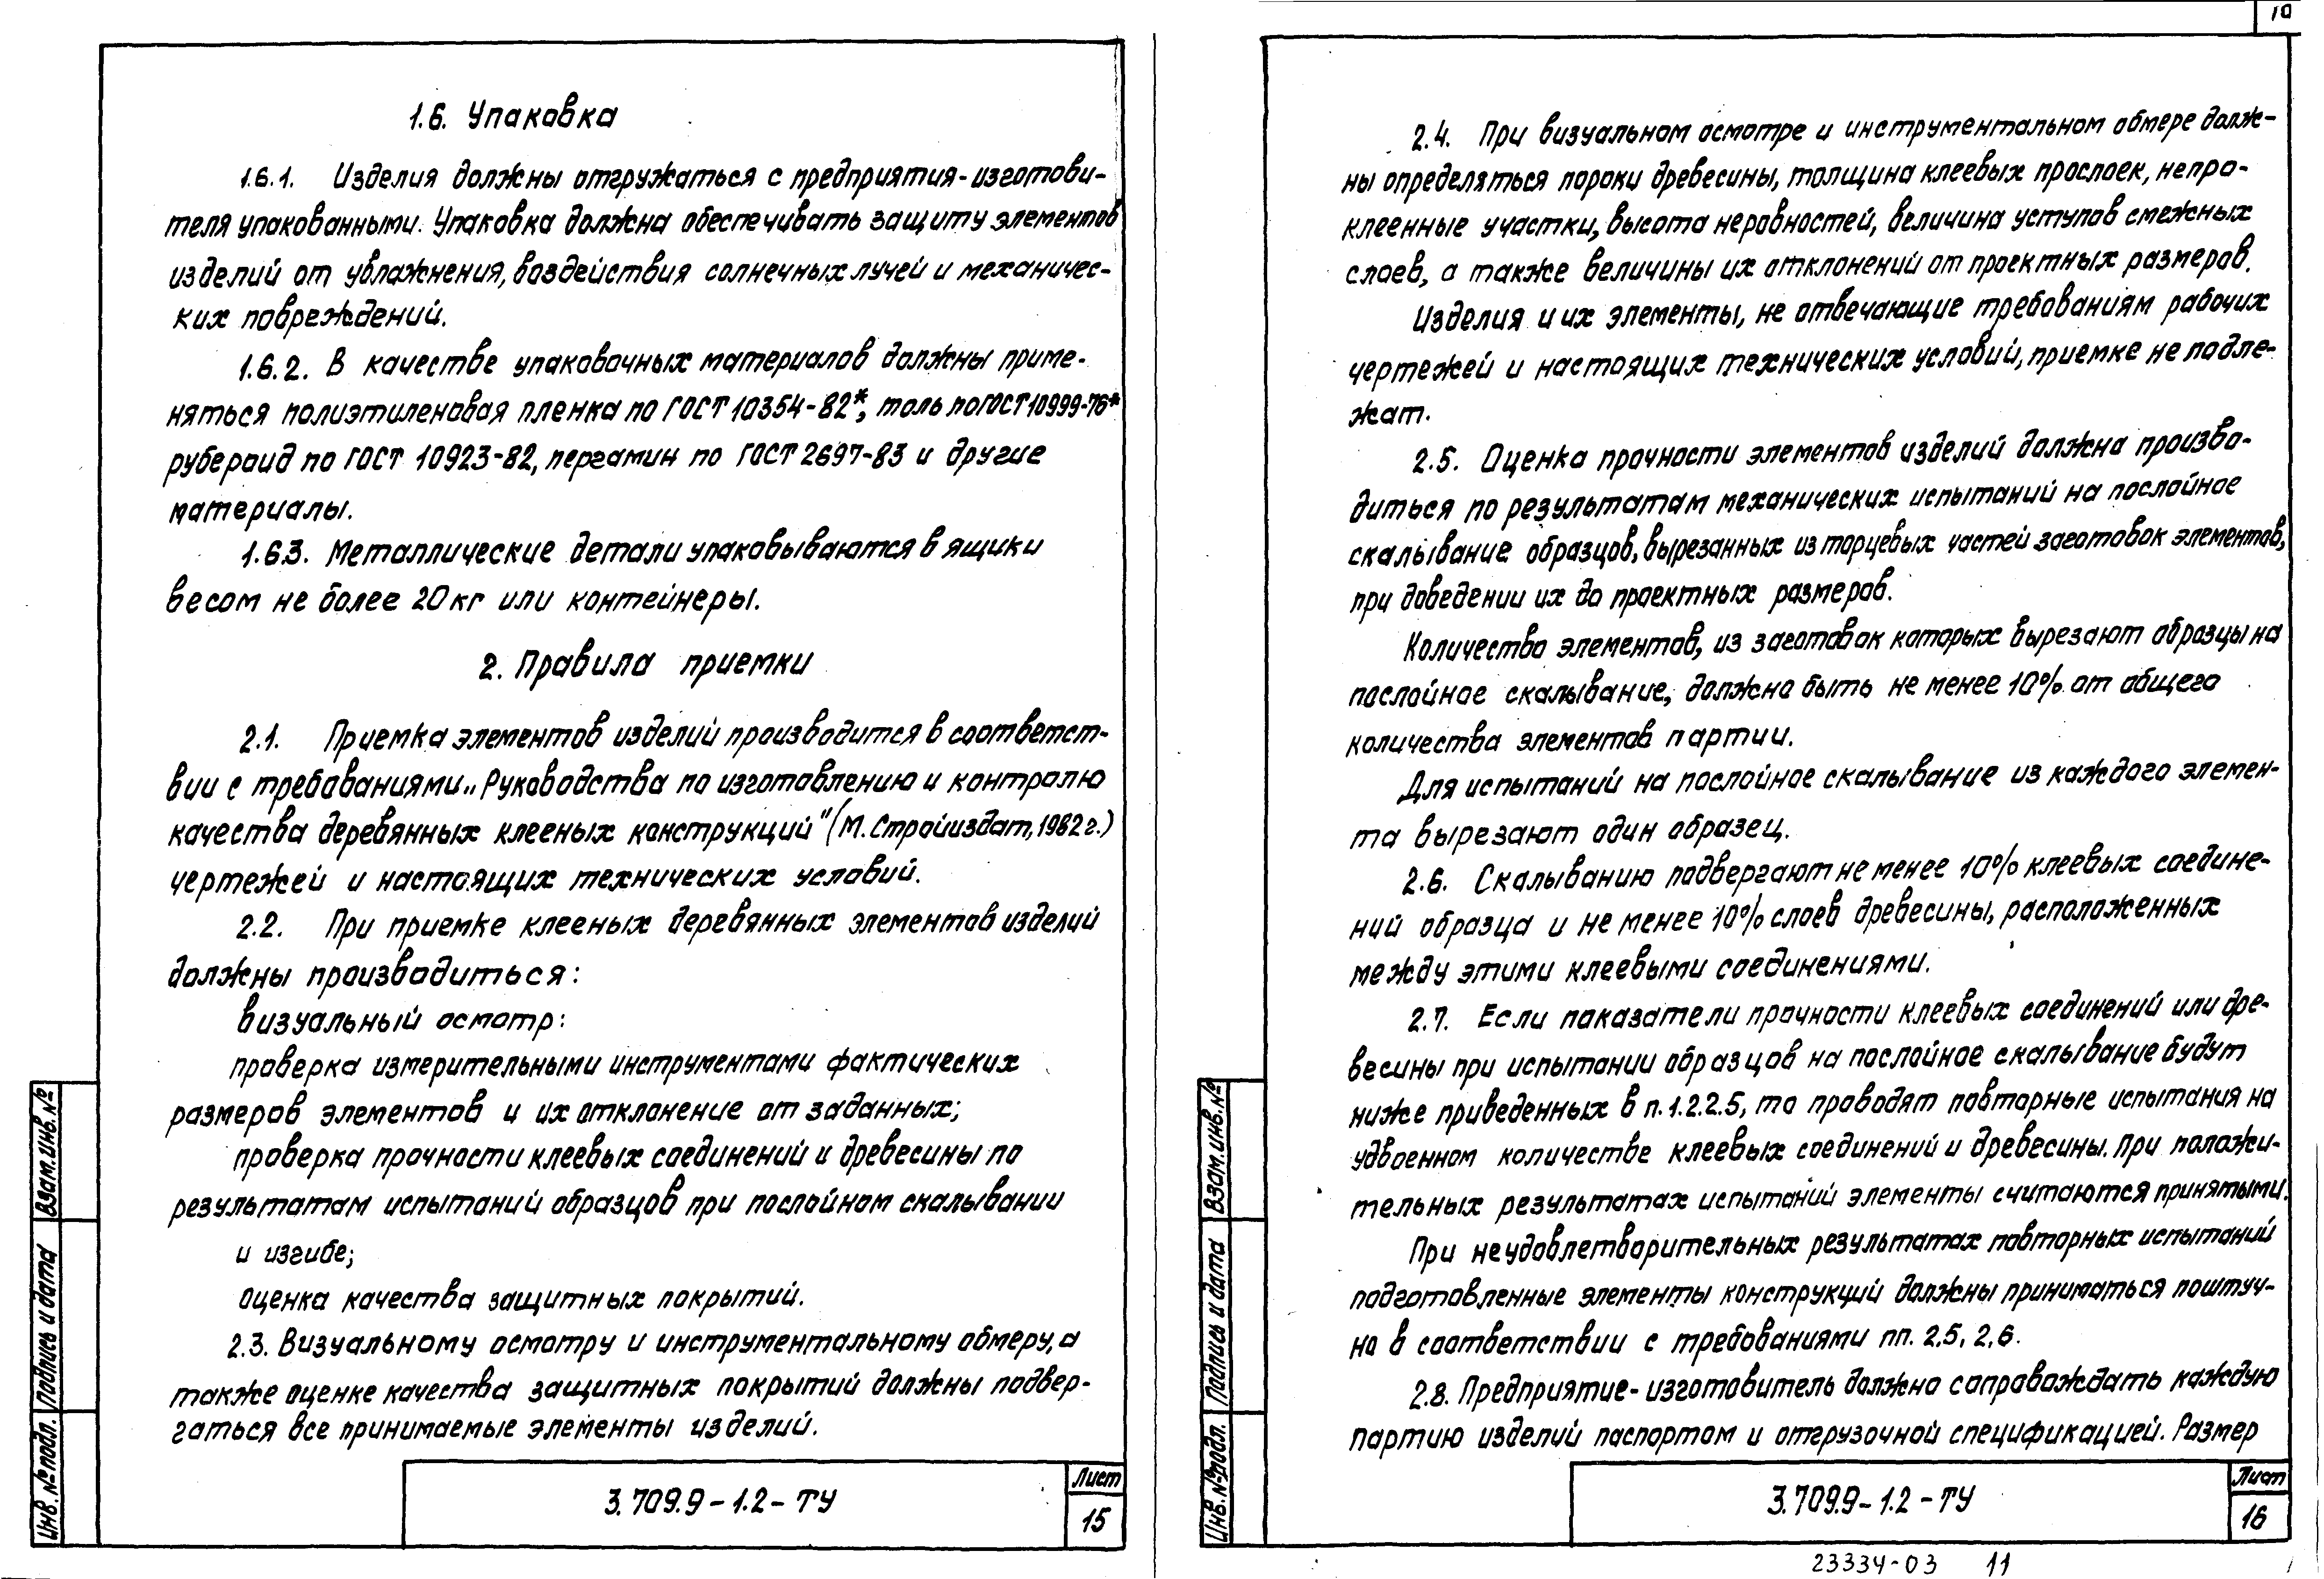 1.6. Упаковка
1.6.1. Изделия должны отгружаться с предприятия-изготови-
теля упакованными. Упаковка должна обеспечивать защиту элементов
изделий от увлажнения, воздействия солнечных лучей и механичес-
ких повреждений.
1.6.2. В качестве упаковочных материалов должны приме-
няться полиэтиленовая пленка по ГОСТ 10354-82*, толь по ГОСТ 10999-76*
рубероид по ГОСТ 10923-82, пергамин по ГОСТ 2697-83 и другие
материалы.
1.6.3. Металлические детали упаковываются в ящики
весом не более 20 кг или контейнеры.
2. Правила приемки
2.1. Приемка элементов изделий производится в соответст-
вии с требованиями „Руководства по изготовлению и контролю
качества деревянных клееных конструкций" (М. Стройиздат, 1982 г.)
чертежей и настоящих технических условий.
2.2. При приемке клееных деревянных элементов изделий
должны производиться:
визуальный осмотр:
проверка измерительными инструментами фактических
размеров элементов и их отклонение от заданных;
проверка прочности клеевых соединений и древесины по
результатам испытаний образцов при послойном скалывании
и изгибе;
оценка качества защитных покрытий.
2.3. Визуальному осмотру и инструментальному обмеру, а
также оценке качества защитных покрытий должны подвер-
гаться все принимаемые элементы изделий.
3.709.9-1.2-ТУ
Лист
15
Инв. № подл.
Подпись и дата
Взам. инв. №
10
2.4. При визуальном осмотре и инструментальном обмере долж-
ны определяться пороки древесины, толщина клеевых прослоек, непро-
клеенные участки, высота неровностей, величина уступов смежных
слоев, а также величины их отклонений от проектных размеров.
Изделия и их элементы, не отвечающие требованиям рабочих
чертежей и настоящих технических условий, приемке не подле-
жат.
2.5. Оценка прочности элементов изделий должна произво-
диться по результатам механических испытаний на послойное
скалывание образцов, вырезанных из торцевых частей заготовок элементов,
при доведении их до проектных размеров.
Количество элементов, из заготовок которых вырезают образцы на
послойное скалывание, должно быть не менее 10% от общего
количества элементов партии.
Для испытаний на послойное скалывание из каждого элемен-
та вырезают один образец.
2.6. Скалыванию подвергают не менее 10% клеевых соедине-
ний образца и не менее 10% слоев древесины, расположенных
между этими клеевыми соединениями.
2.7. Если показатели прочности клеевых соединений или дре-
весины при испытании образцов на послойное скалывание будут
ниже приведенных в п. 1.2.2.5, то проводят повторные испытания на
удвоенном количестве клеевых соединений и древесины. При положи-
тельных результатах испытаний элементы считаются принятыми.
При неудовлетворительных результатах повторных испытаний
подготовленные элементы конструкций должны приниматься поштуч-
но в соответствии с требованиями пп. 2.5, 2.6.
2.8. Предприятие-изготовитель должно сопровождать каждую
партию изделий паспортом и отгрузочной спецификацией. Размер
3.709.9-1.2-ТУ
Лист
16
Инв. № подл.
Подпись и дата
Взам. инв. №
23334-03 11